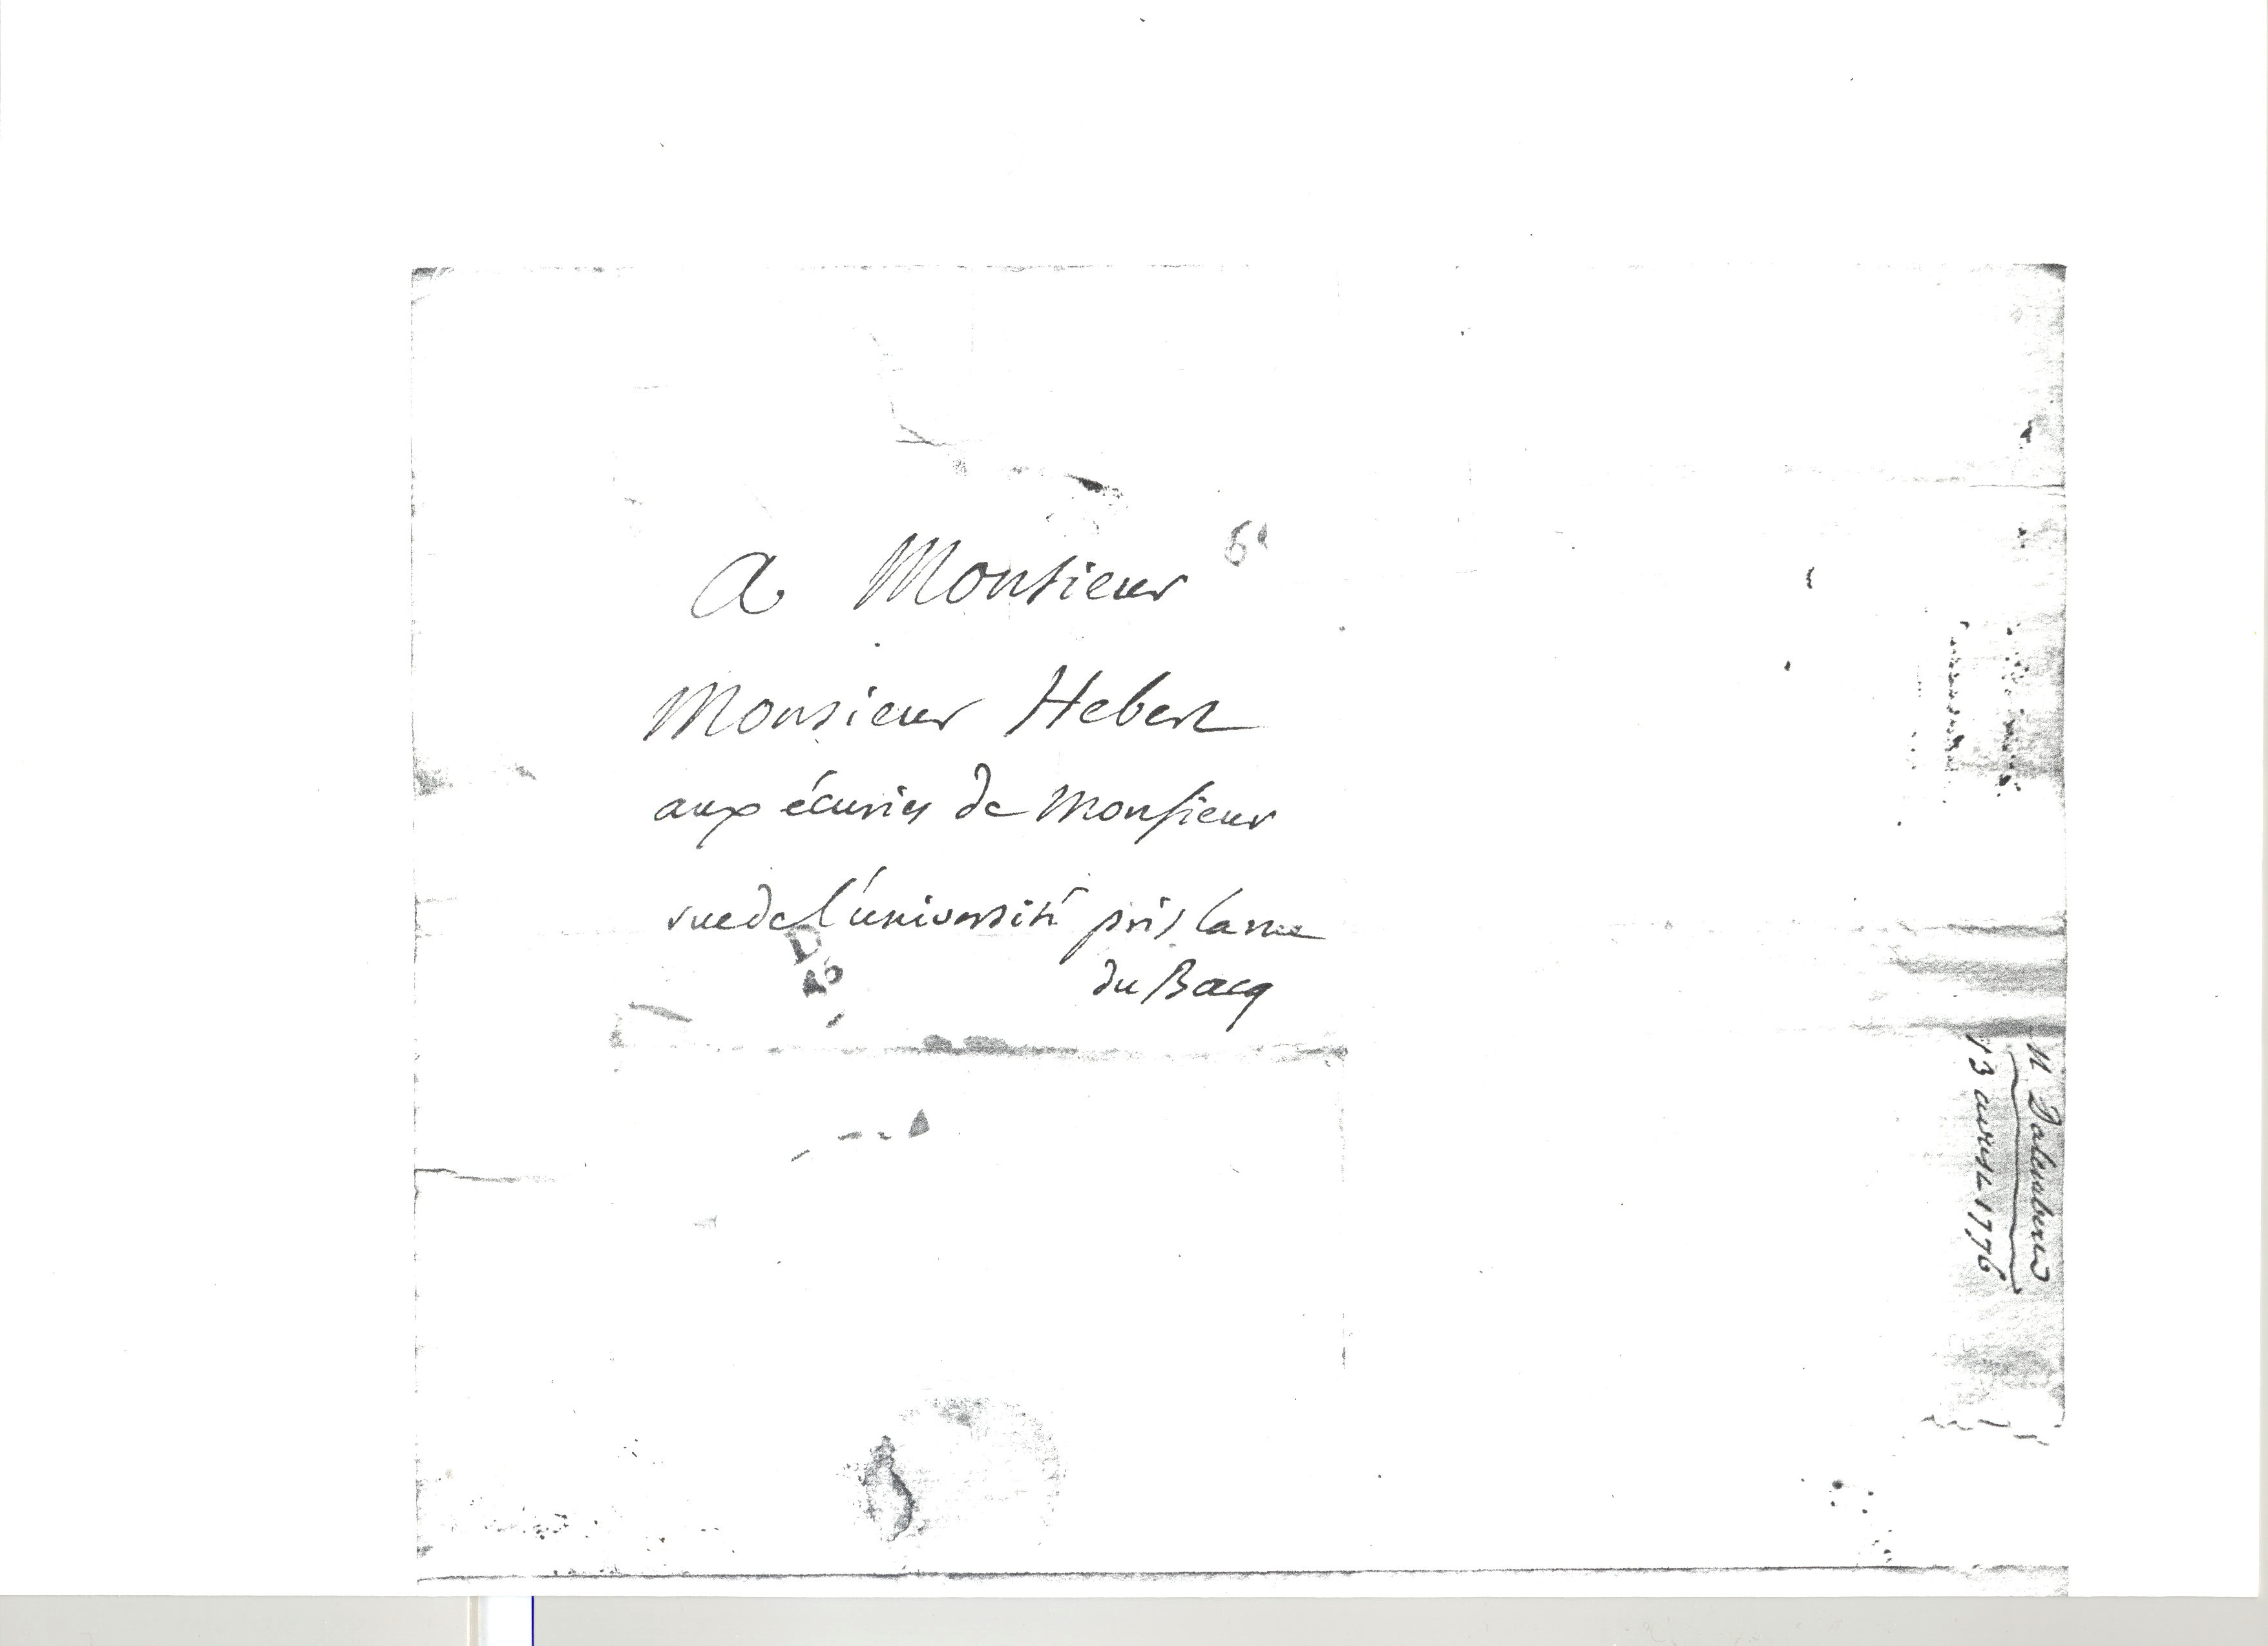 A Monsieur
Monsieur Hebert
aux écuries de Monsieur
rue de l'université près la rue
du Bacq
M Dalembert
13 aoust 1776